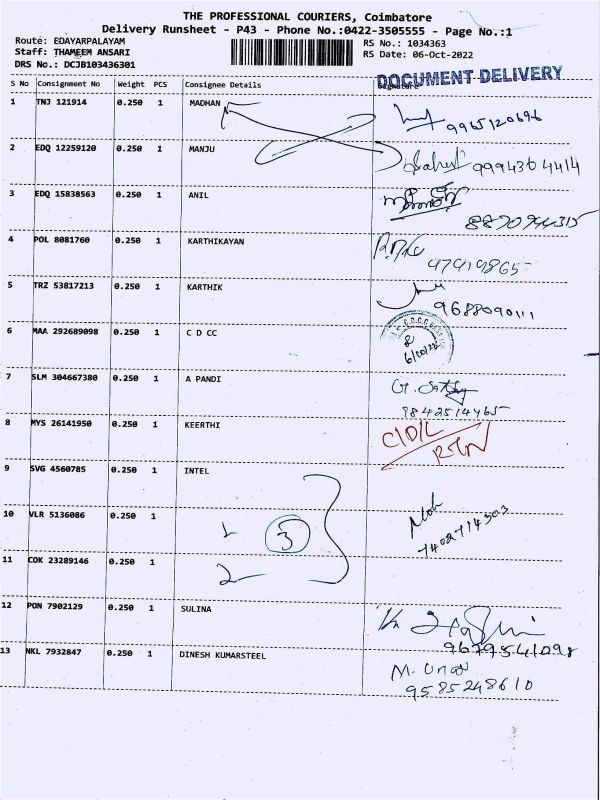 THE PROFESSIONAL COURIERS, Coimbatore
Delivery Runsheet - P43 - Phone No.:0422-3505555 - Page No.:1
Route: EDAYARPALAYAM
RS No.: 1034363
Staff: THAMEEM ANSARI
RS Date: 06-Oct-2022
DRS No.: DCJB103436301
DOCUMENT DELIVERY
S No Consignment No Weight PCS Consignee Details Signature
1 TNJ 121914 0.250 1 MADHAN 9965120696
2 EDQ 12259120 0.250 1 MANJU 9994364414
3 EDQ 15838563 0.250 1 ANIL
4 POL 8081760 0.250 1 KARTHIKAYAN
5 TRZ 53817213 0.250 1 KARTHIK
6 MAA 292689098 0.250 1 C D CC
7 SLM 304667380 0.250 1 A PANDI
9842514465
8 MYS 26141950 0.250 1 KEERTHI
9 SVG 4560785 0.250 1 INTEL
10 VLR 5136086 0.250 1 1 3
7402714303
11 COK 23289146 0.250 1 2
12 PON 7902129 0.250 1 SULINA
9679541098
13 NKL 7932847 0.250 1 DINESH KUMARSTEEL
9585248610